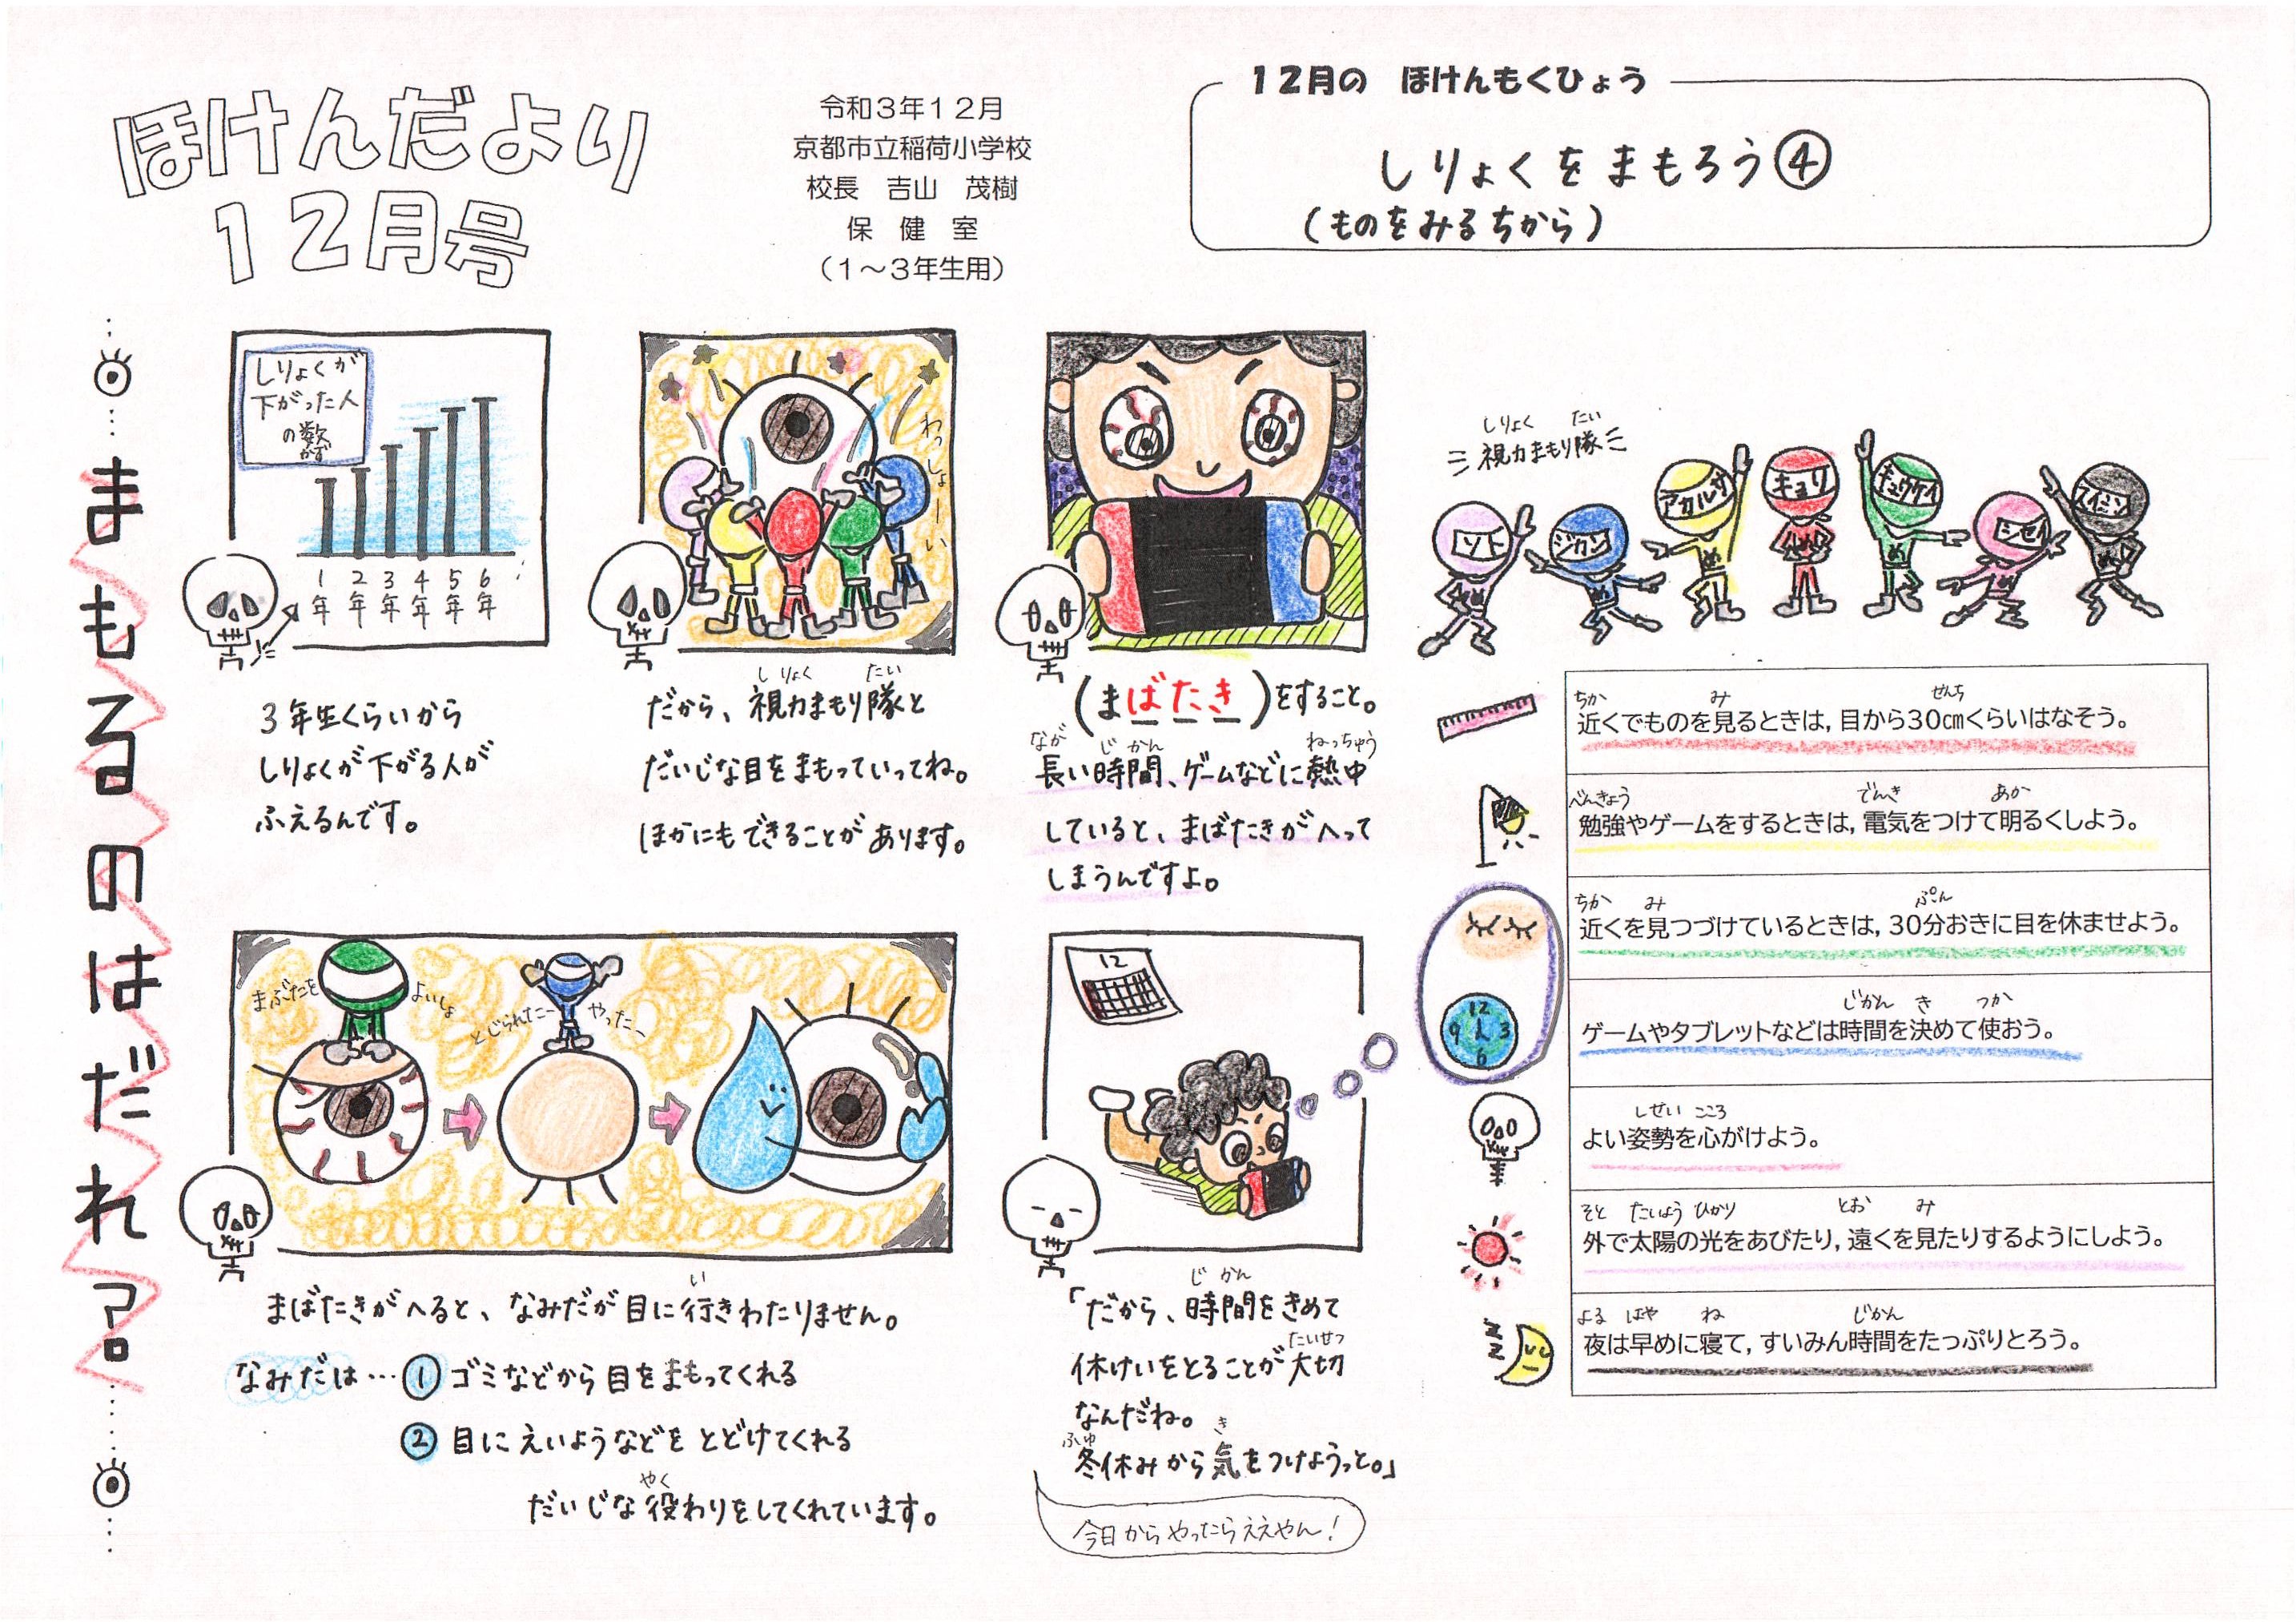 ほけんだより
12月号
令和3年12月
京都市立稲荷小学校
校長　吉山　茂樹
保　健　室
(1～3年生用)
12月の　ほけんもくひょう
しりょくをまもろう④
(ものをみるちから)
まもるのはだれ?
しりょくが
下がった人
の数
かず
1年 2年 3年 4年 5年 6年
3年生くらいから
しりょくが下がる人が
ふえるんです。
わっしょーい
しりょく たい
だから、視力まもり隊と
だいじな目をまもっていってね。
ほかにもできることがあります。
(まばたき)をすること。
なが じかん ねっちゅう
長い時間、ゲームなどに熱中
していると、まばたきがへって
しまうんですよ。
まぶたを よいしょ
とじられたー やったー
い
まばたきがへると、なみだが目に行きわたりません。
なみだは…①ゴミなどから目をまもってくれる
②目にえいようなどをとどけてくれる
やく
だいじな役わりをしてくれています。
12
じかん
「だから、時間をきめて
たいせつ
休けいをとることが大切
なんだね。
ふゆ き
冬休みから気をつけようっと。」
今日からやったらええやん!
しりょく たい
視力まもり隊
ソト
ジカン
アカルサ
キョリ
キュウケイ
シセイ
スイミン
ちか み せんち
近くでものを見るときは,目から30㎝くらいはなそう。
べんきょう でんき あか
勉強やゲームをするときは,電気をつけて明るくしよう。
ちか み ぷん
近くを見つづけているときは,30分おきに目を休ませよう。
12
9 3
6
じかん き つか
ゲームやタブレットなどは時間を決めて使おう。
しせい こころ
よい姿勢を心がけよう。
そと たいよう ひかり とお み
外で太陽の光をあびたり,遠くを見たりするようにしよう。
よる はや ね じかん
夜は早めに寝て,すいみん時間をたっぷりとろう。